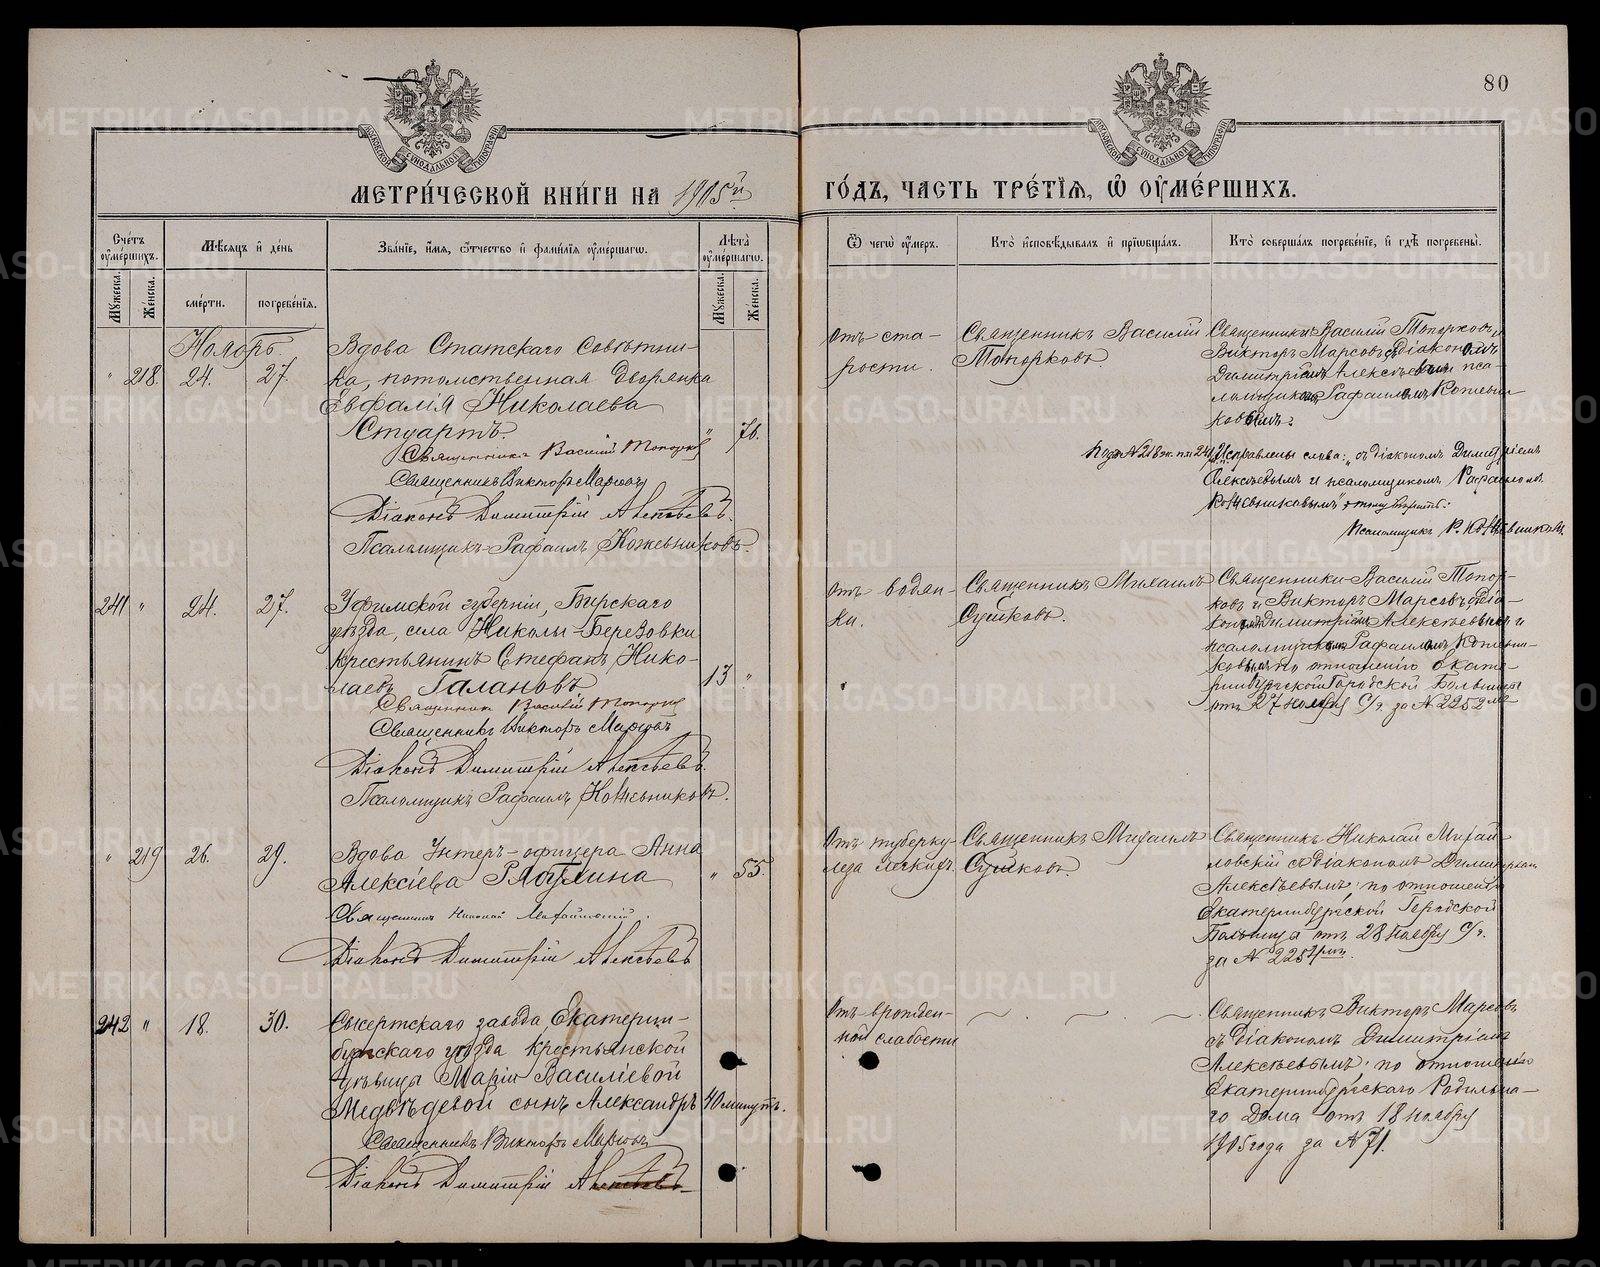 80
МЕТРИ́ЧЕСКОЙ КНИ́ГИ НА 1905й
ГО́ДЪ, ЧАСТЬ ТРЕ́ТІѦ, Ѡ҆ ОУ҆МЕ́РШИХЪ.
Сче́тъ оу҆ме́ршихъ.
Мѣ́сяцъ и҆ де́нь
Зва́нїе, и҆́мѧ, ѻ҆́тчество и҆ фами́лїѧ оу҆ме́ршагѡ.
Лѣ́та оу҆ме́ршагѡ.
Мꙋ́жеска.
Же́нска.
сме́рти.
погребе́нїѧ.
Мꙋ́жеска.
Же́нска.
Ѿ чегѡ̀ оу҆́меръ.
Кто̀ и҆сповѣ́дывалъ и҆ прїѡбща́лъ.
Кто̀ соверша́лъ погребе́нїе, и҆ гдѣ̀ погребены̀.
Ноябрь.
" 218. 24. 27.
Вдова Статскаго Совѣтни-
ка, потомственная дворянка
Евфалія Николаева
Стуартъ.
" 76.
Священникъ Василій Топорковъ
Священникъ Викторъ Марсовъ
Діаконъ Димитрій Алексѣевъ.
Псаломщикъ Рафаилъ Кожевниковъ.
Отъ ста-
рости.
Священникъ Василій
Топорковъ.
Священники Василій Топорковъ и
Викторъ Марсовъ съ Діакономъ
Димитріемъ Алексѣевымъ и пса-
ломщикомъ Рафаиломъ Кожевни-
ковымъ.
Исправлены слова: „съ діакономъ Димитріемъ
Алексѣевымъ и псаломщикомъ Рафаиломъ
Кожевниковымъ"
Псаломщикъ Р. Кожевниковъ.
241 " 24. 27.
Уфимской губерніи, Бирскаго
уѣзда, села Николы-Березовки
крестьянинъ Стефанъ Нико-
лаевъ Галановъ
13 "
Священникъ Василій Топорковъ
Священникъ Викторъ Марсовъ
Діаконъ Димитрій Алексѣевъ.
Псаломщикъ Рафаилъ Кожевниковъ.
Отъ водян-
ки.
Священникъ Михаилъ
Сушковъ.
Священники Василій Топор-
ковъ и Викторъ Марсовъ съ діа-
кономъ Димитріемъ Алексѣевымъ и
псаломщикомъ Рафаиломъ Кожевни-
ковымъ по отношенію Екате-
ринбургской Городской Больницы
отъ 27 ноября с/г. за № 2252мъ
" 219 26. 29.
Вдова Унтеръ-офицера Анна
Алексіева Рябухина
" 55.
Священникъ Николай Михайловскій.
Діаконъ Димитрій Алексѣевъ
Отъ туберку-
леза легкихъ.
Священникъ Михаилъ
Сушковъ.
Священникъ Николай Михай-
ловскій съ діакономъ Димитріемъ
Алексѣевымъ по отношенію
Екатеринбургской Городской
Больницы отъ 28 ноября с/г.
за № 2254мъ.
242 " 18. 30.
Сысертскаго завода Екатерин-
бургскаго уѣзда крестьянской
дѣвицы Маріи Василіевой
Медвѣдевой сынъ Александръ
40 минутъ.
Священникъ Викторъ Марсовъ
Діаконъ Димитрій Алексѣевъ
Отъ врожден-
ной слабости
Священникъ Викторъ Марсовъ
съ Діакономъ Димитріемъ
Алексѣевымъ по отношенію
Екатеринбургскаго Родильна-
го Дома отъ 18 ноября
1905 года за № 71.
METRIKI.GASO-URAL.RU